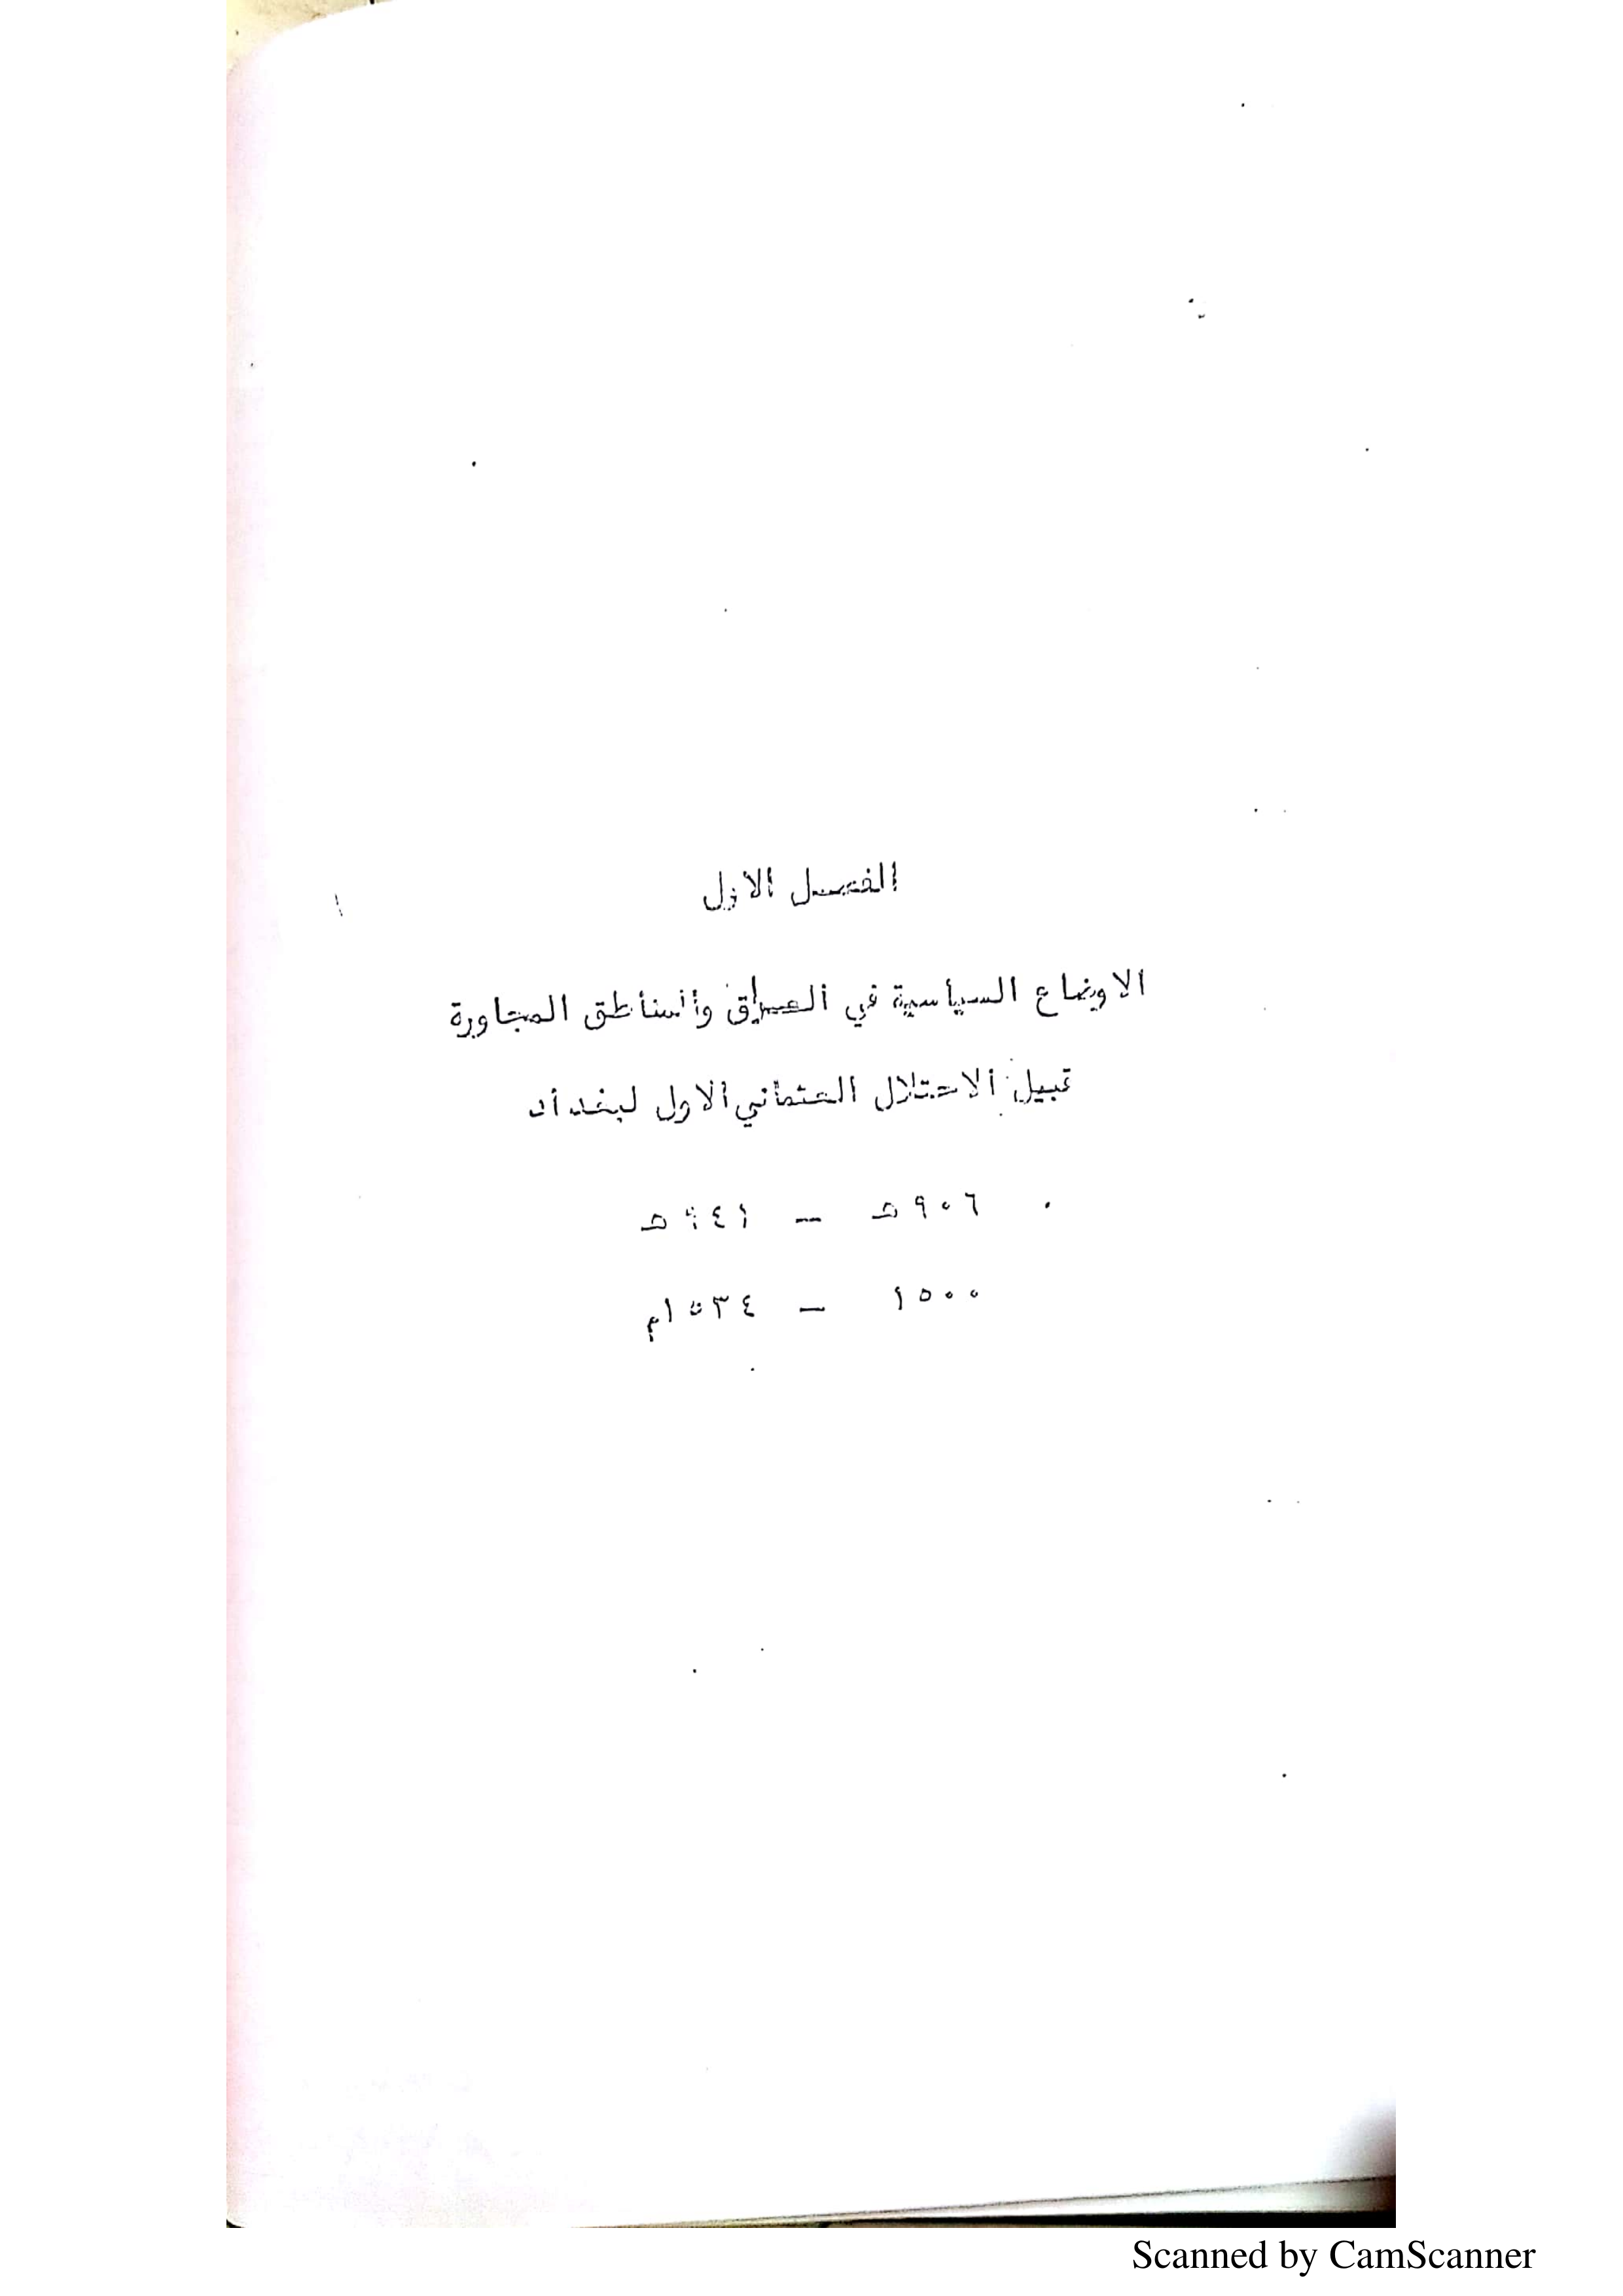 الفصل الاول
الاوضاع السياسية في العراق والمناطق المجاورة
قبيل الاحتلال العثماني الاول لبغداد
٩٠٦هـ – ٩٤١هـ
١٥٠٠ – ١٥٣٤م
Scanned by CamScanner